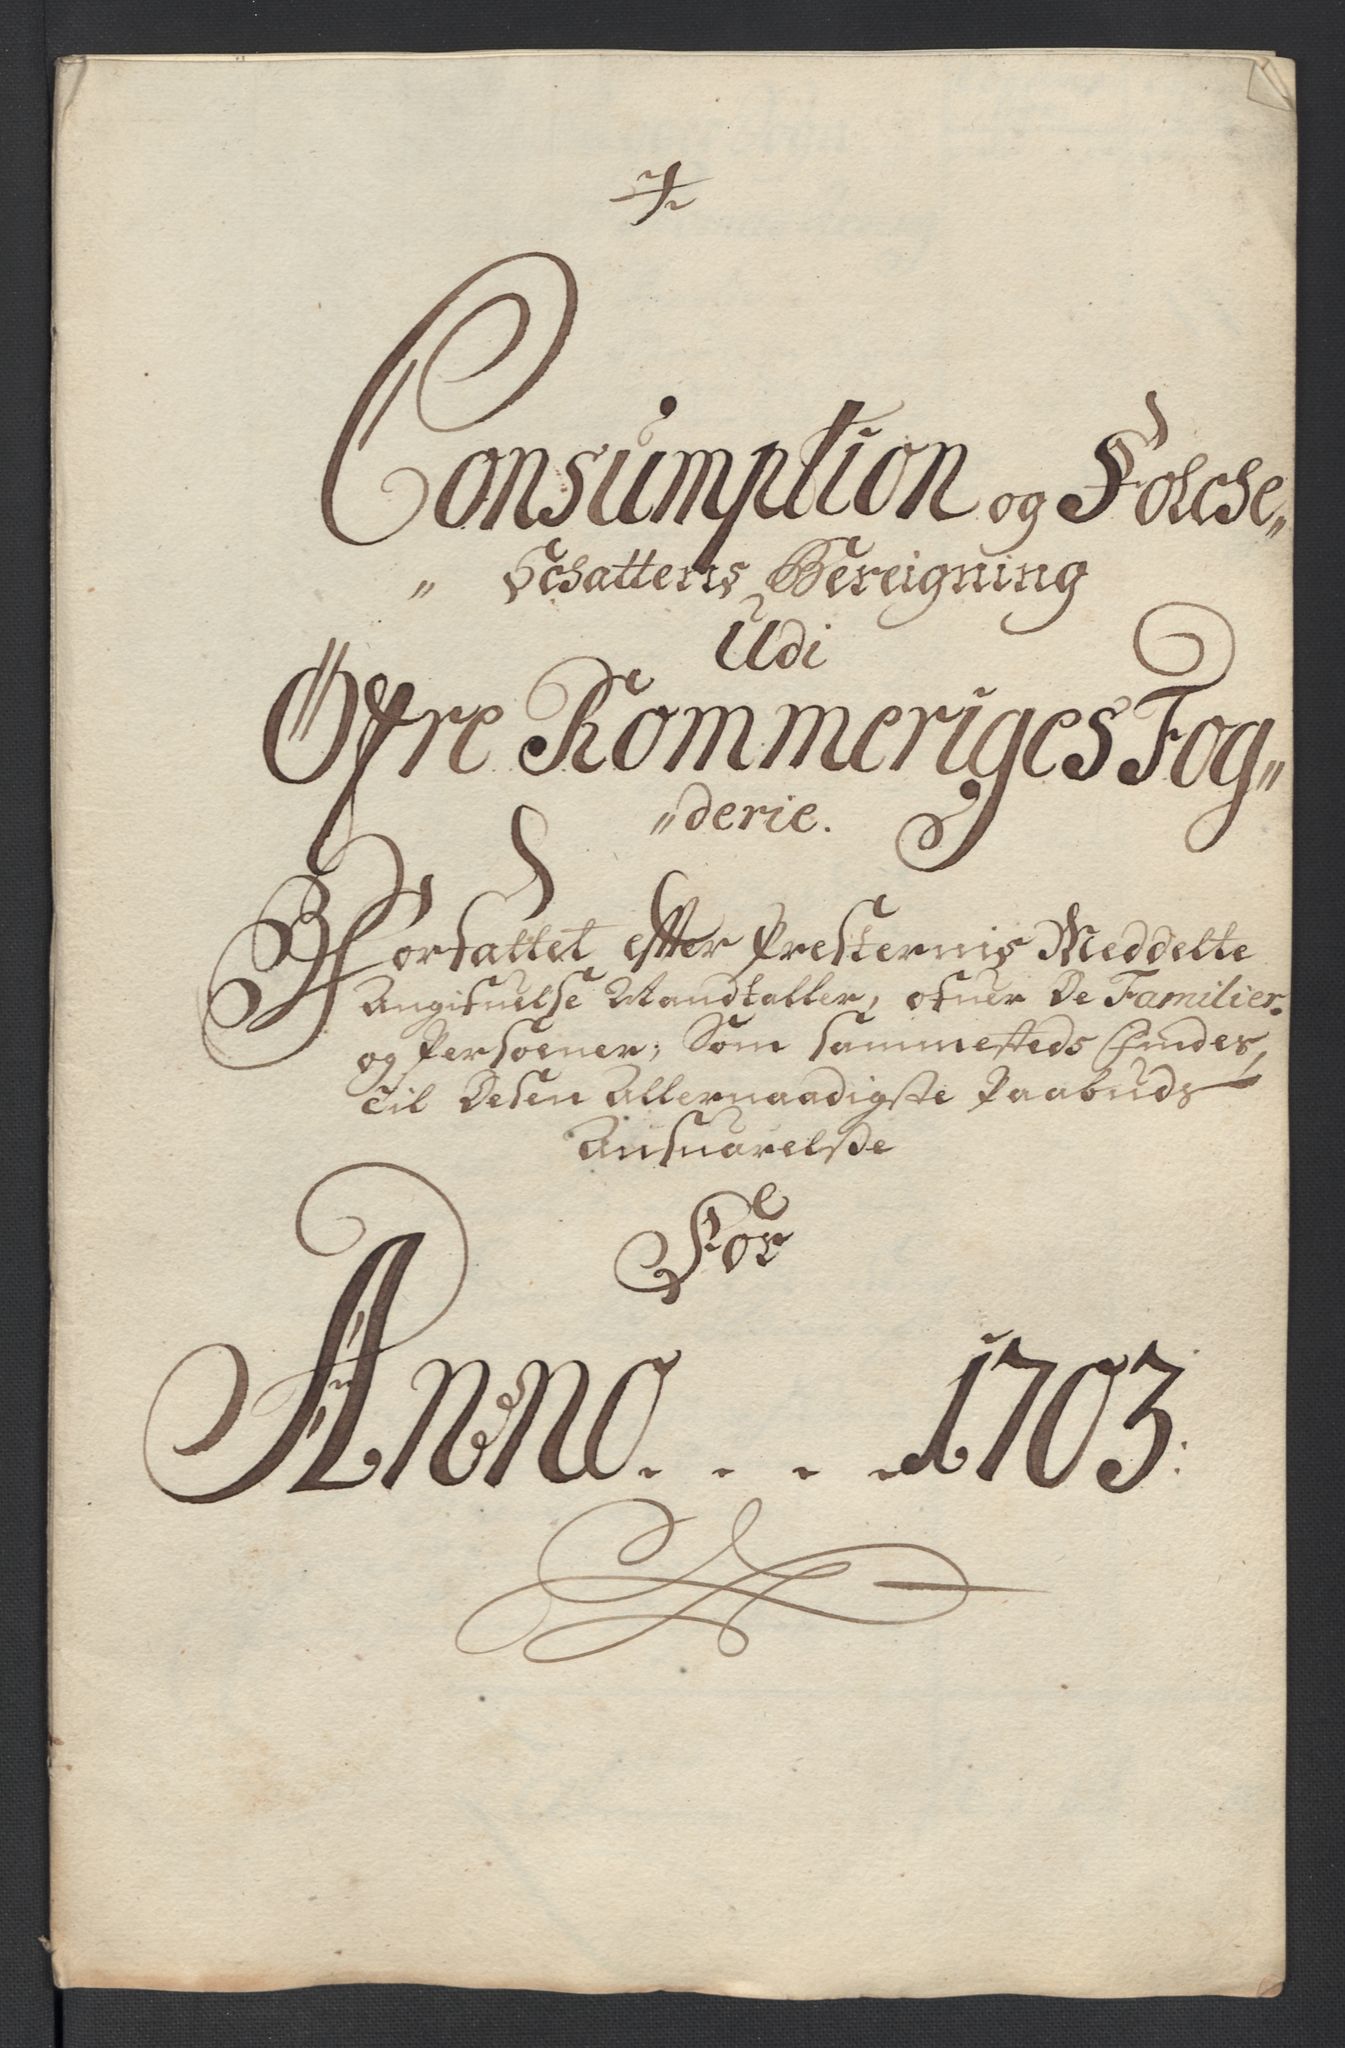 Consumption og Folche„
„ Schattens Bereigning
Udi
Øfre Rommeriges Fog„
„derie.
Forfattet efter Presternis Meddelte
Angifuelse Mandtaller, ofuer De Familier
og Persoener; Som sammesteds findes,
til Desen Allernaadigste Paabuds
Ansuarelse
For
Anno . . . . 1703.